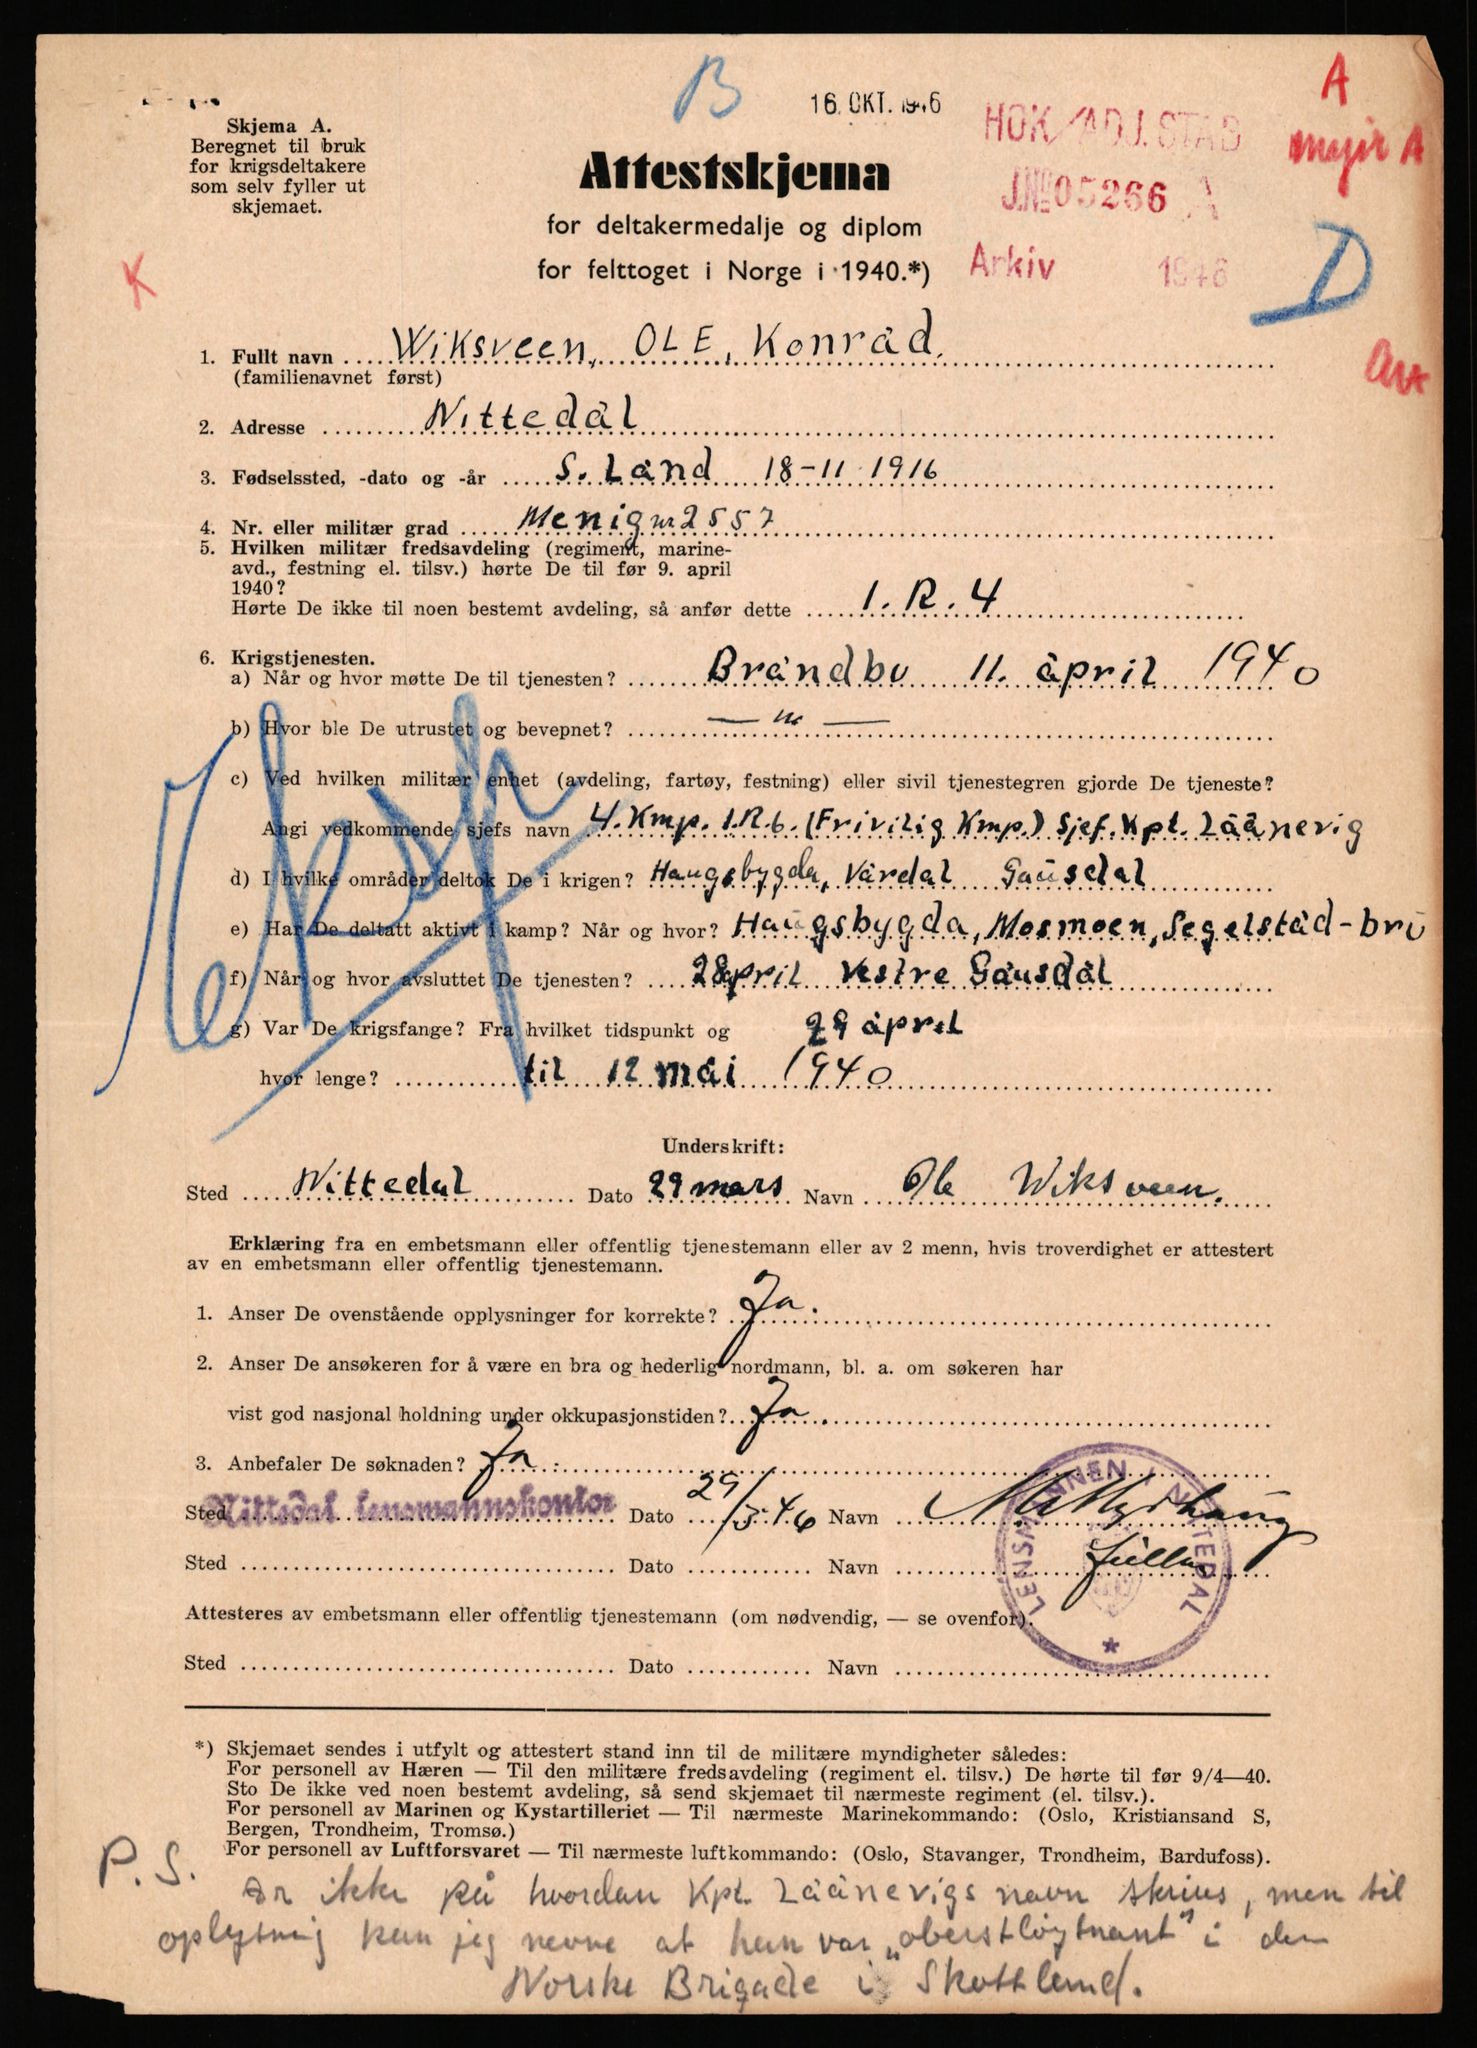 B
16. OKT. 1946
A
major A
HOK/ADJ.STAB
J.№ 05266 A
Arkiv 1946
D
K
Skjema A.
Beregnet til bruk
for krigsdeltakere
som selv fyller ut
skjemaet.
Attestskjema
for deltakermedalje og diplom
for felttoget i Norge i 1940.*)
1. Fullt navn Wiksveen, OLE, Konrad.
(familienavnet først)
2. Adresse Nittedal
3. Fødselssted, -dato og -år S. Land 18-11 1916
4. Nr. eller militær grad Menig nr 2557
5. Hvilken militær fredsavdeling (regiment, marine-
avd., festning el. tilsv.) hørte De til før 9. april
1940?
Hørte De ikke til noen bestemt avdeling, så anfør dette I.R.4
6. Krigstjenesten.
a) Når og hvor møtte De til tjenesten? Brandbu 11. april 1940
b) Hvor ble De utrustet og bevepnet? — „ —
c) Ved hvilken militær enhet (avdeling, fartøy, festning) eller sivil tjenestegren gjorde De tjeneste?
Angi vedkommende sjefs navn 4. Kmp. I.R.6. (Frivilig Kmp.) Sjef. Kpt. Låånevig
d) I hvilke områder deltok De i krigen? Haugsbygda, Vardal Gausdal
e) Har De deltatt aktivt i kamp? Når og hvor? Haugsbygda, Mosmoen, Segelstad-bru
f) Når og hvor avsluttet De tjenesten? 28 april Vestre Gausdal
g) Var De krigsfange? Fra hvilket tidspunkt og 29 april
hvor lenge? til 12 mai 1940
Underskrift:
Sted Nittedal Dato 29 mars Navn Ole Wiksveen.
Erklæring fra en embetsmann eller offentlig tjenestemann eller av 2 menn, hvis troverdighet er attestert
av en embetsmann eller offentlig tjenestemann.
1. Anser De ovenstående opplysninger for korrekte? Ja.
2. Anser De ansøkeren for å være en bra og hederlig nordmann, bl. a. om søkeren har
vist god nasjonal holdning under okkupasjonstiden? Ja.
3. Anbefaler De søknaden? Ja.
Sted Nittedal lensmannskontor Dato 29/3-46 Navn
Sted Dato Navn
LENSMANNEN NITTEDAL
Attesteres av embetsmann eller offentlig tjenestemann (om nødvendig, — se ovenfor).
Sted Dato Navn
*) Skjemaet sendes i utfylt og attestert stand inn til de militære myndigheter således:
For personell av Hæren — Til den militære fredsavdeling (regiment el. tilsv.) De hørte til før 9/4—40.
Sto De ikke ved noen bestemt avdeling, så send skjemaet til nærmeste regiment (el. tilsv.).
For personell av Marinen og Kystartilleriet — Til nærmeste Marinekommando: (Oslo, Kristiansand S,
Bergen, Trondheim, Tromsø.)
For personell av Luftforsvaret — Til nærmeste luftkommando: (Oslo, Stavanger, Trondheim, Bardufoss).
P.S. Er ikke på hvordan Kpt. Låånevigs navn skrives, men til
oplysning kan jeg nevne at han var „oberstløytnant" i den
Norske Brigade i Skottland.